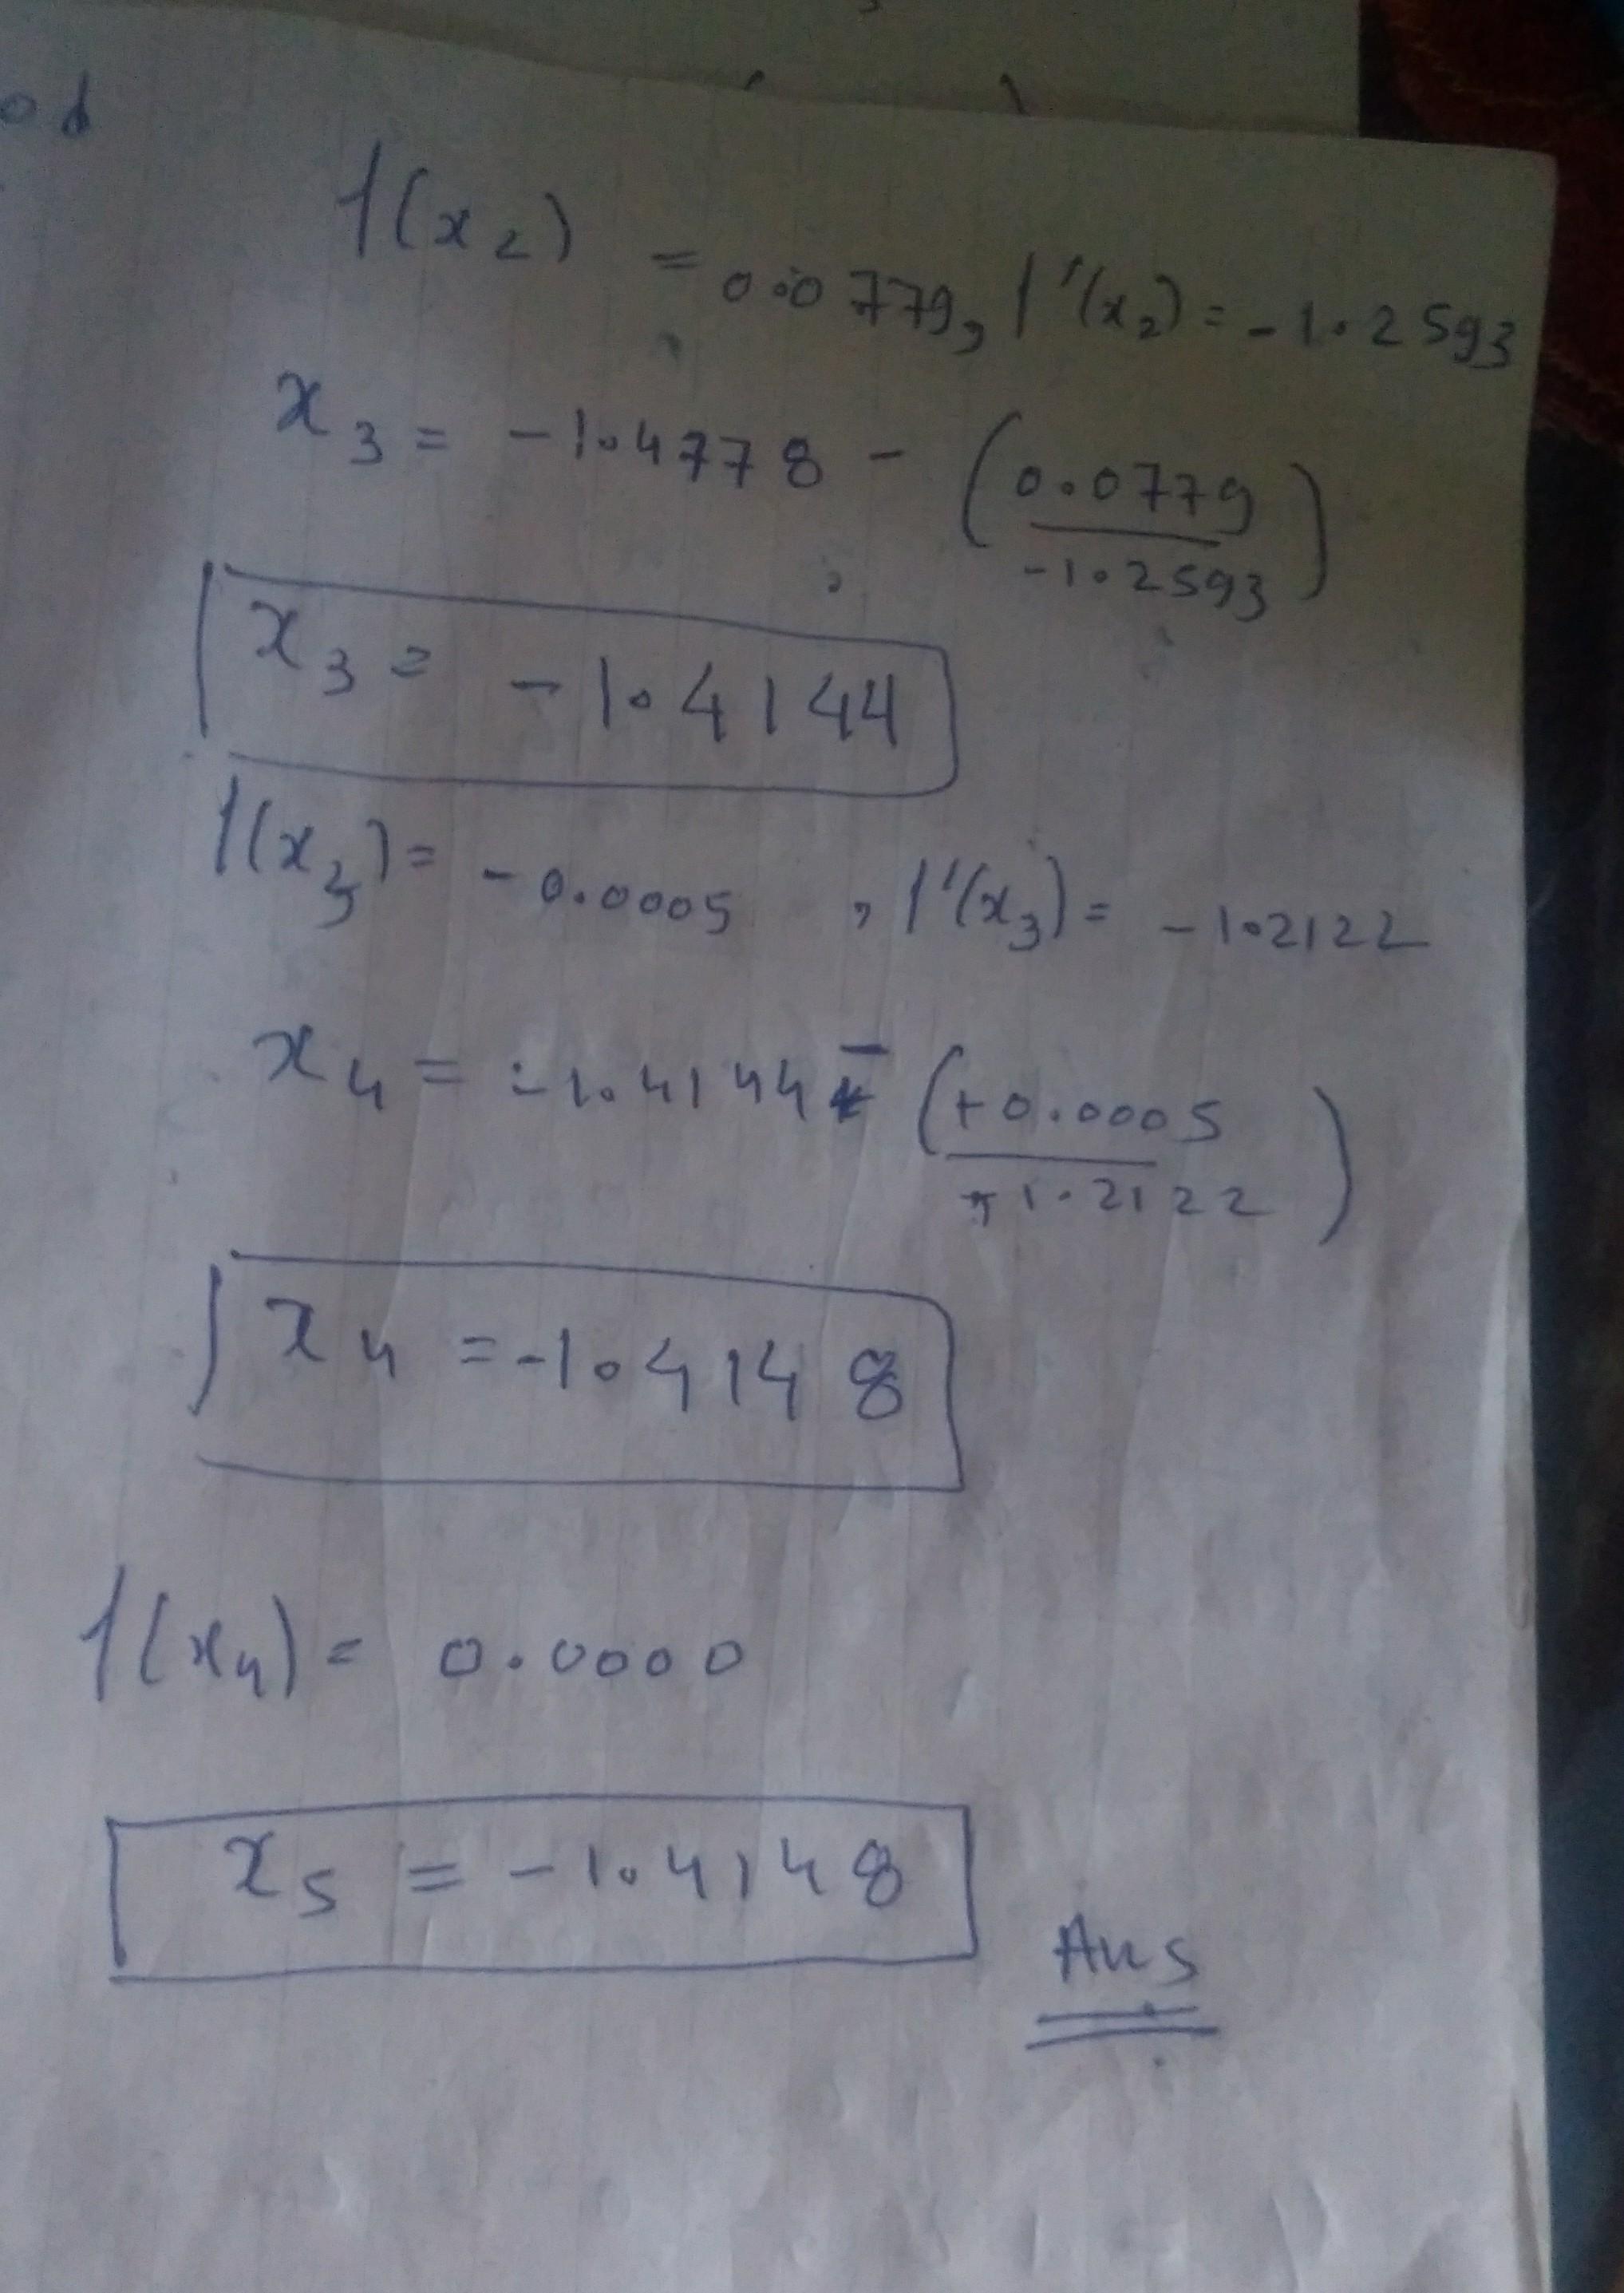 od
f(x₂) = 0.0779, f'(x₂) = -1.2593
x₃ = -1.4778 - (0.0779 / -1.2593)
x₃ = -1.4144
f(x₃) = -0.0005 , f'(x₃) = -1.2122
x₄ = -1.4144 - (+0.0005 / +1.2122)
x₄ = -1.4148
f(x₄) = 0.0000
x₅ = -1.4148
Ans